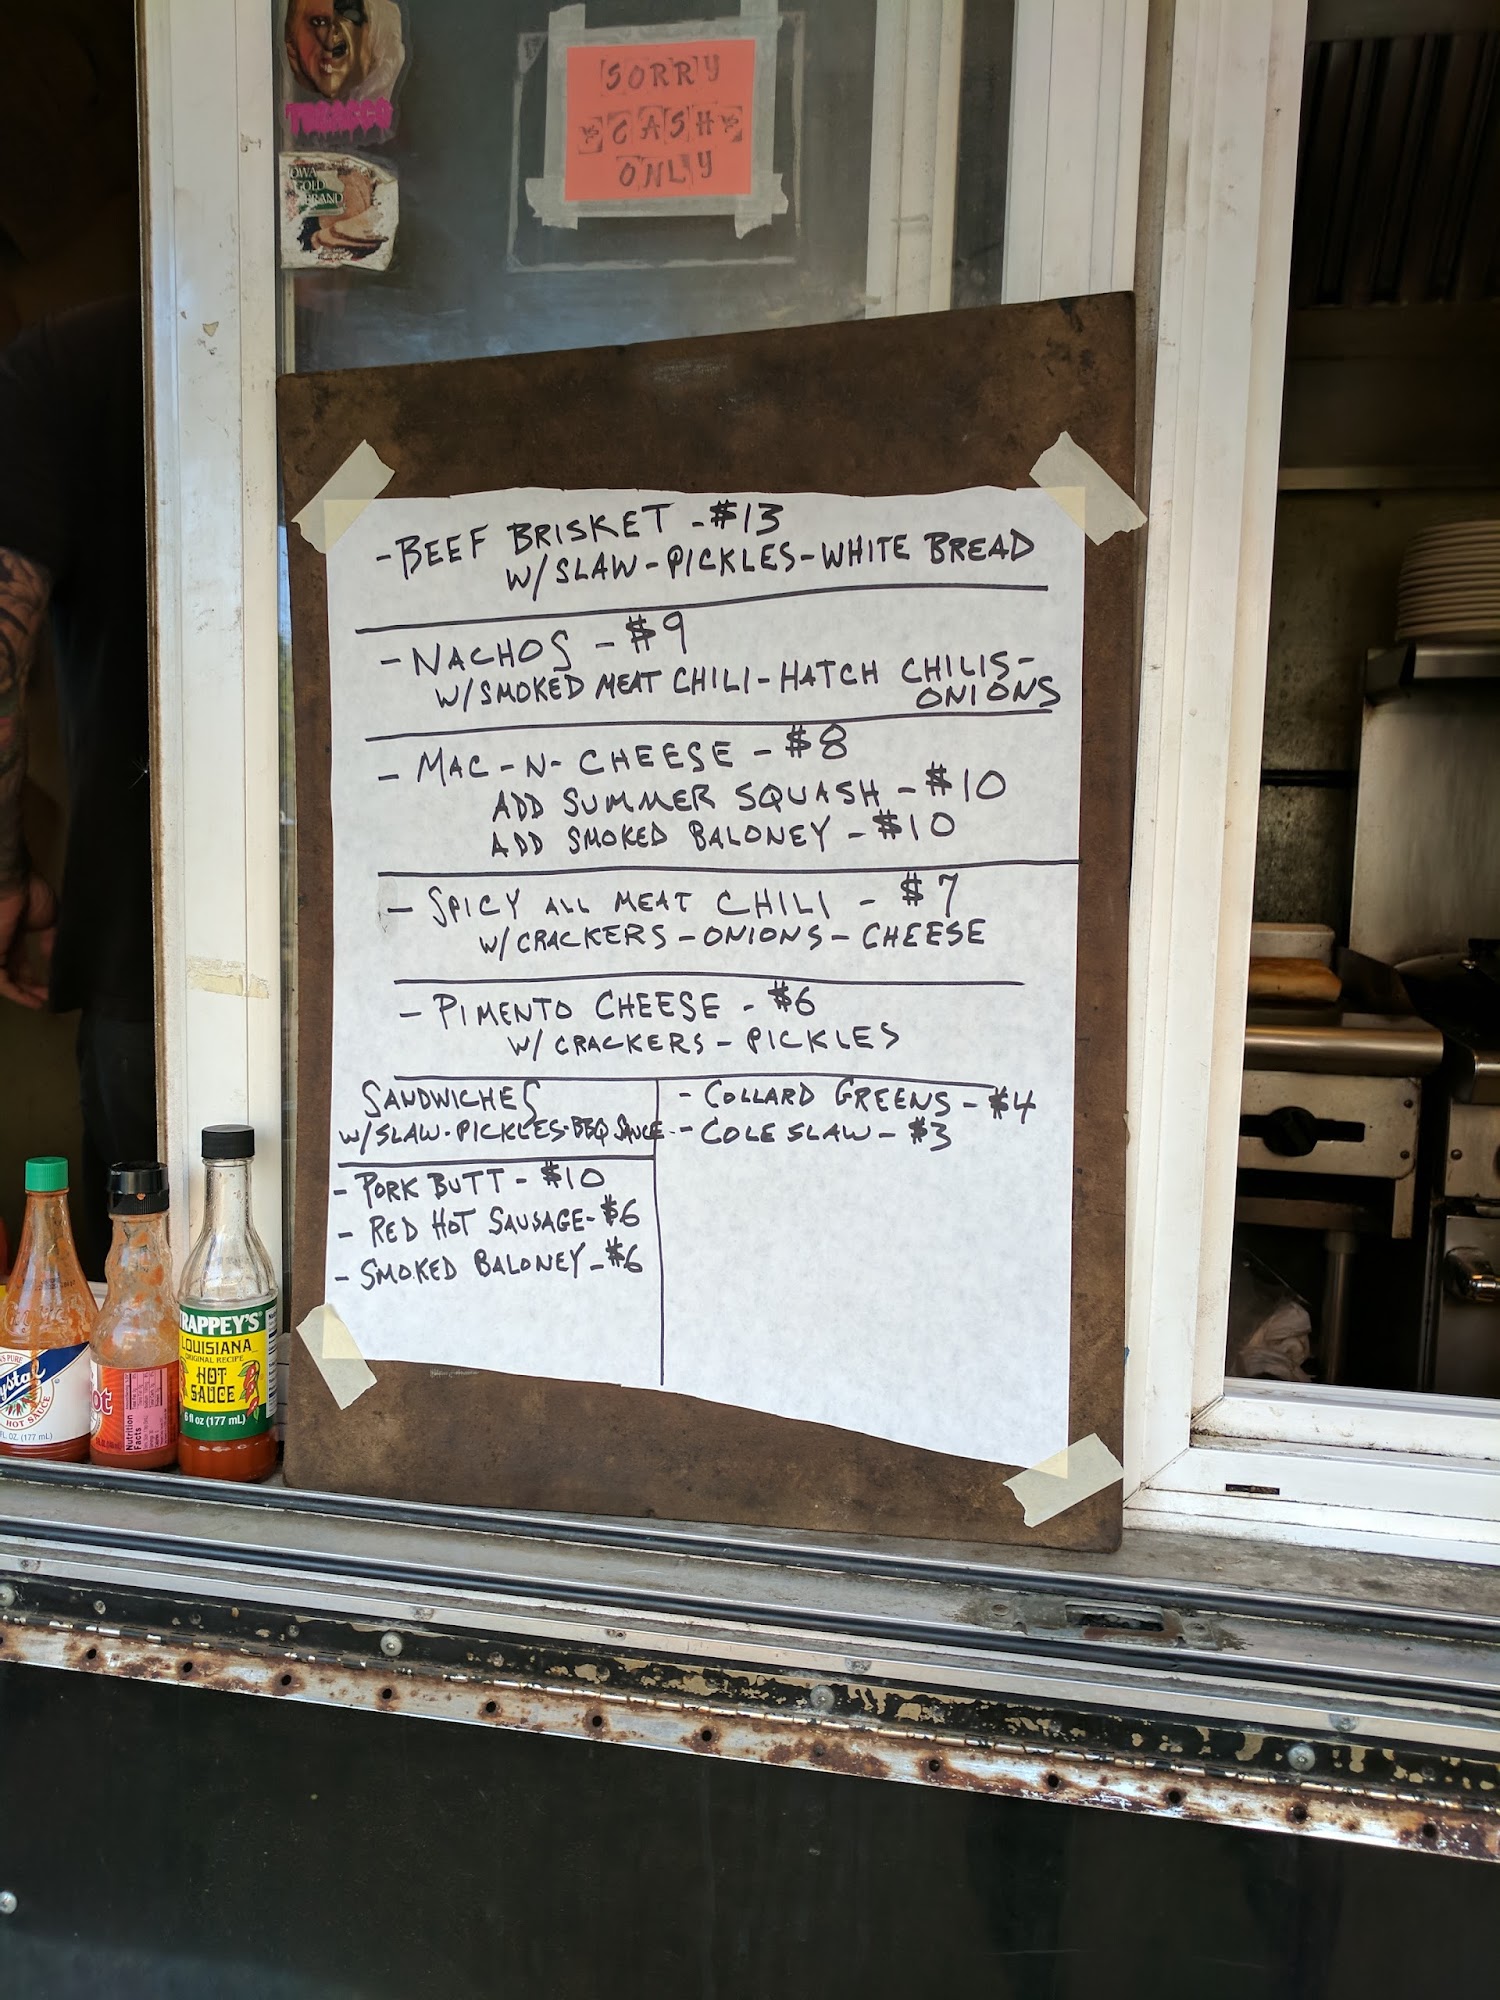 TOBACCO
IOWA
GOLD
BRAND
SORRY
CASH
ONLY
-BEEF BRISKET -$13
W/SLAW-PICKLES-WHITE BREAD
-NACHOS -$9
W/SMOKED MEAT CHILI-HATCH CHILIS-
ONIONS
- MAC-N-CHEESE -$8
ADD SUMMER SQUASH -$10
ADD SMOKED BALONEY -$10
- SPICY ALL MEAT CHILI - $7
W/CRACKERS-ONIONS-CHEESE
- PIMENTO CHEESE - $6
W/ CRACKERS- PICKLES
SANDWICHES
W/SLAW-PICKLES-BBQ SAUCE
- PORK BUTT- $10
- RED HOT SAUSAGE-$6
- SMOKED BALONEY-$6
- COLLARD GREENS-$4
- COLE SLAW-$3
ystal
HOT SAUCE
FL OZ. (177 mL)
ot
Nutrition
Facts
RAPPEY'S
LOUISIANA
ORIGINAL RECIPE
HOT
SAUCE
6 fl oz (177 mL)